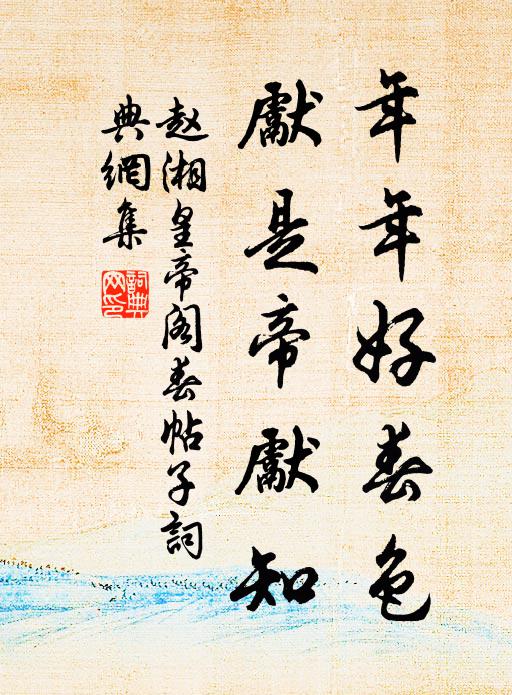 年年好春色
獻是帝獻知
赵湘皇帝阁春帖子詞
典網集
詞典
网印